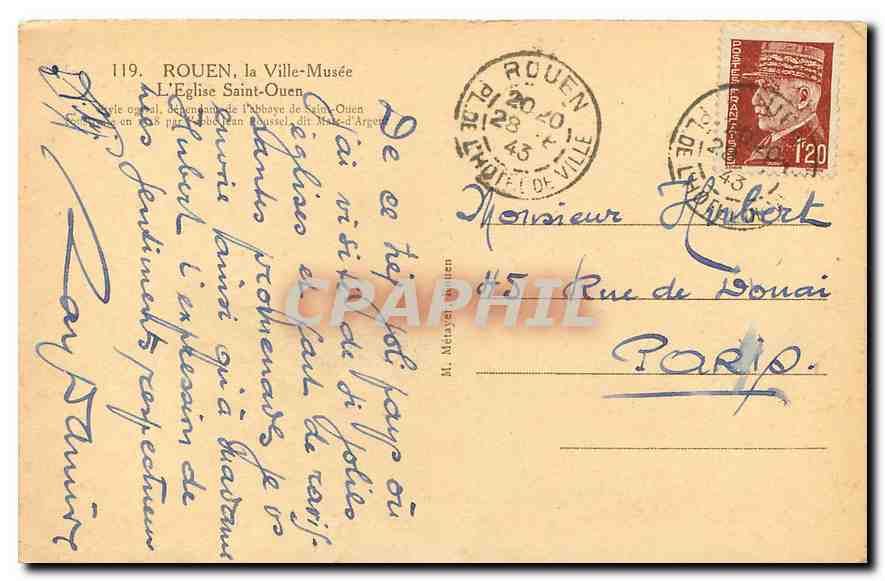 119. ROUEN, la Ville-Musée
L'Eglise Saint-Ouen
Style ogival, dépendant de l'abbaye de Saint-Ouen
par l'abbé Jean Roussel, dit Marc-d'Argent
De ce très joli pays où
j'ai visité de si jolies
églises et fait de ravis-
santes promenades je vs
envoie ainsi qu'à Madame
Hubert l'expression de
mes sentiments respectueux
M. Métayer, Rouen
ROUEN
20 20
28
43
PL. DE L'HOTEL DE VILLE
POSTES FRANÇAISES
1F20
PL. DE L'HOTEL
43
Monsieur Hubert
45 Rue de Douai
Paris.
CPAPHIL